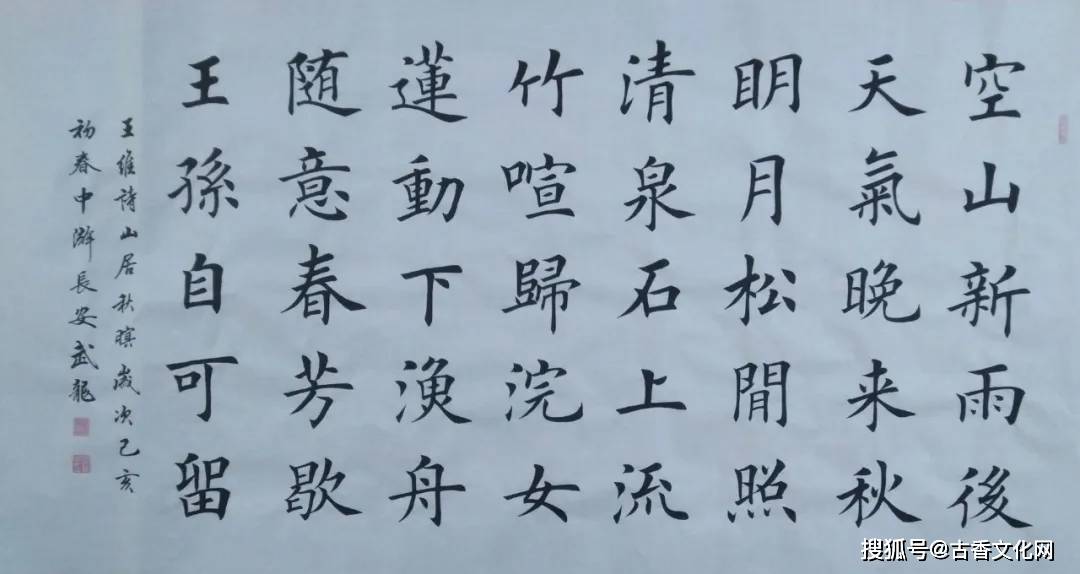 空山新雨後
天氣晚来秋
明月松間照
清泉石上流
竹喧歸浣女
蓮動下漁舟
随意春芳歇
王孫自可留
王維詩山居秋暝歲次己亥
初春中澣長安武龍
搜狐号@古香文化网